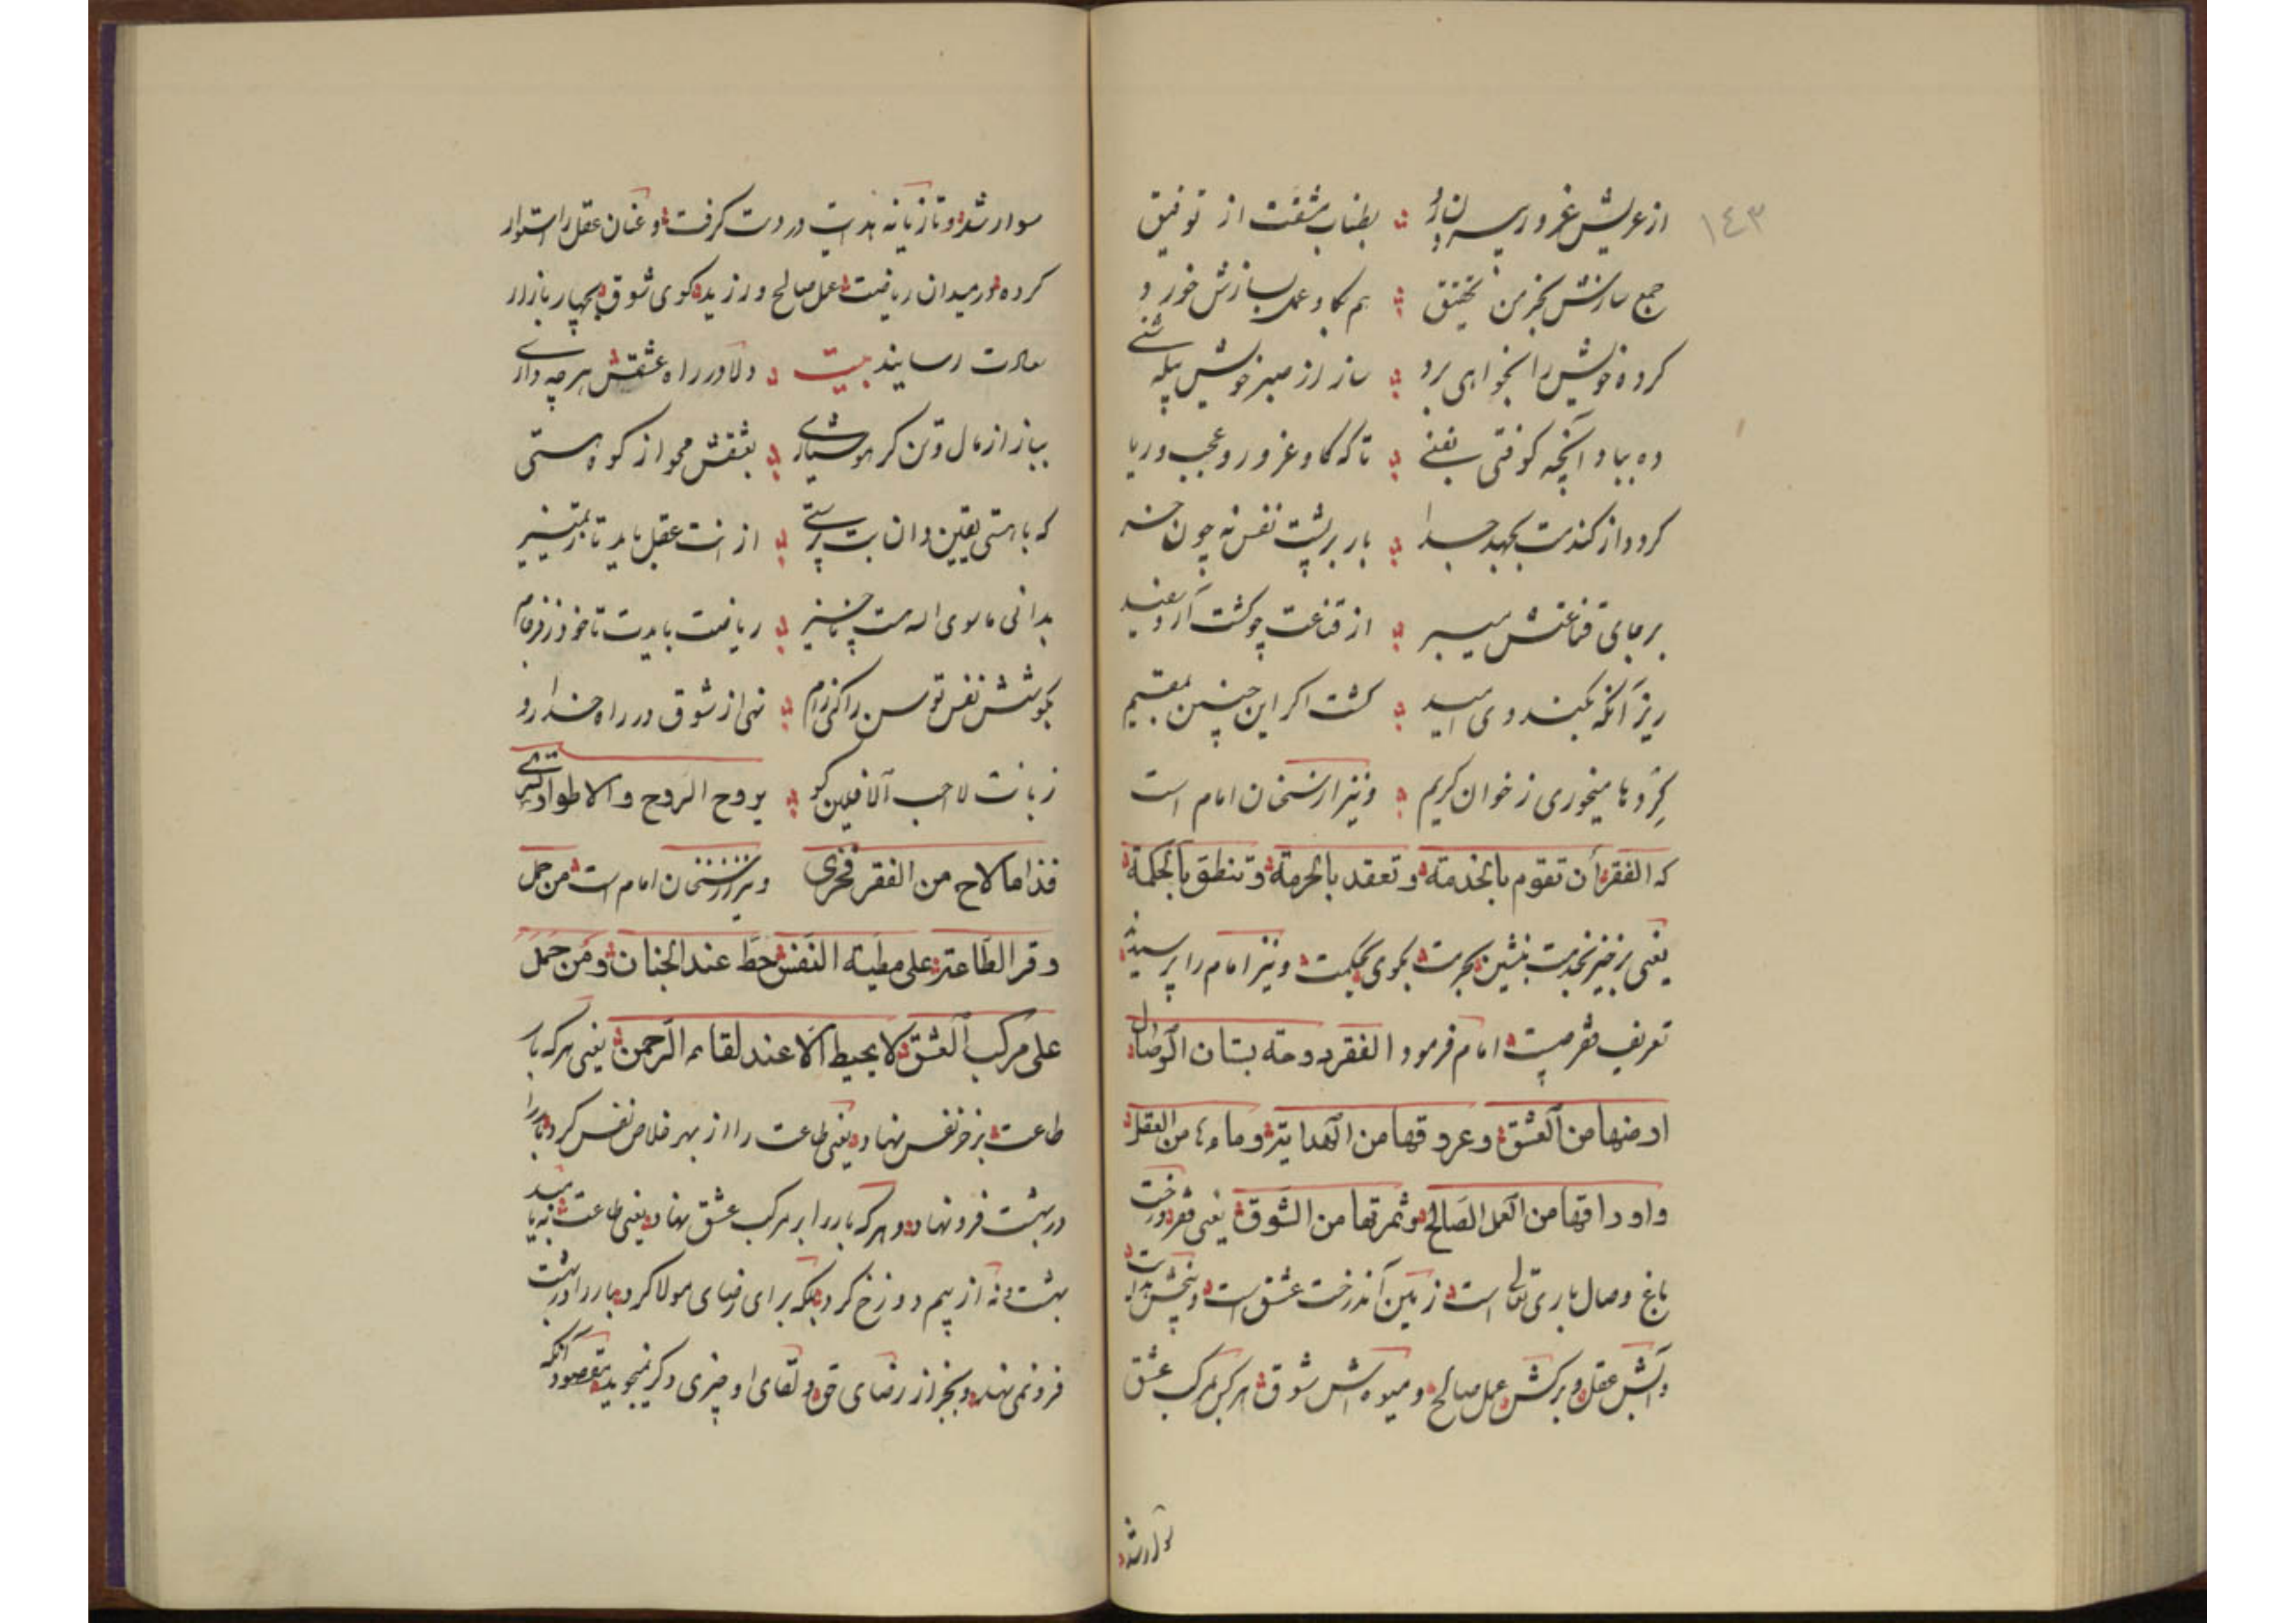 ١٤٣
از عریش غرور بیرون آر بطناب مشقت از توفیق
جمع سازش بخرمن تحقیق هم بکاو عمل بسازش خورد
کرده خویش را بخواهی برد ساز از صبر خویش بیله شنی
ده بباد آنچه کوفتی یعنی تا که کاو غرور و عجب و ریا
کرد و از کندمت بجهد جدا بار بر پشت نفس نه چون خر
بر بپای قناعتش میبر از قناعت چو کشت آرد سفید
ریز آنکه بکندوی امید کشت اکر این چنین مقیم
کرده‌ها میخوری ز خوان کریم و نیز از سخنان امام است
که الفقر أن تقوم بالخدمة و تعقد بالحرمة و تنطق بالحکمة
یعنی برخیز بخدمت بنشین بحرمت بکوی بحکمت و نیز امام را پرسیدند
تعریف فقر چیست امام فرمود الفقر دوحة بستان الوصال
ارضها من العشق و عروقها من الهدایة و ماءها من العقل
و اوراقها من العمل الصالح و ثمرتها من الشوق یعنی فقر درخت
باغ وصال باری تعالی است زمین آندرخت عشق است و بیخش هدایت
و آبش عقل و برکش عمل صالح و میوه اش شوق هر کس بمرکب عشق
سوار شد
سوار شد و تازیانه هدایت در دست کرفت و عنان عقل را استوار
کرده در میدان ریاضت عمل صالح ورزید کوی شوق بچهار بازار
سعادت رسانید بیت دلا در راه عشقش هر چه داری
بباز از مال و تن کر هوشیاری بعشقش محو از کوه هستی
که با هستی یقین دان بت پرستی از انت عقل باید تا بتمییز
بدانی ماسوی الله هست ناچیز ریاضت بایدت تا خود ز فرجام
بکوشش نفس توسن را کنی رام نهی از شوق در راه خدا رو
زبانت لا احب الآفلین کو بروح الروح والاطوار تسری
فذا ما لاح من الفقر فخری و نیز از سخنان امام است من حمل
وقر الطاعة علی مطیة النفس حط عند الجنان و من حمل
علی مرکب العشق لا یحیط الا عند لقاء الرحمن یعنی هر که بار
طاعت بر خر نفس نهاد یعنی طاعت را از بهر خلاص نفس کرد بار را
در بهشت فرو نهاد و هر که بار را بر مرکب عشق نهاد یعنی طاعت نه بامید
بهشت و نه از بیم دوزخ کرد بلکه برای رضای مولا کرد بار را در بهشت
فرو نمی نهد و بجز از رضای حق و لقای او چیزی دکر نمیجوید مقصود آنکه